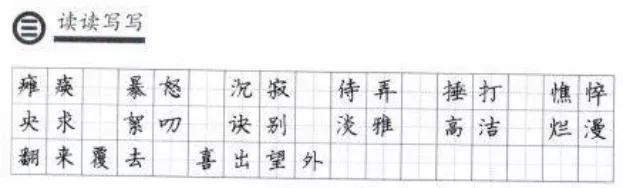 三 读读写写
瘫痪 暴怒 沉寂 侍弄 捶打 憔悴
央求 絮叨 诀别 淡雅 高洁 烂漫
翻来覆去 喜出望外